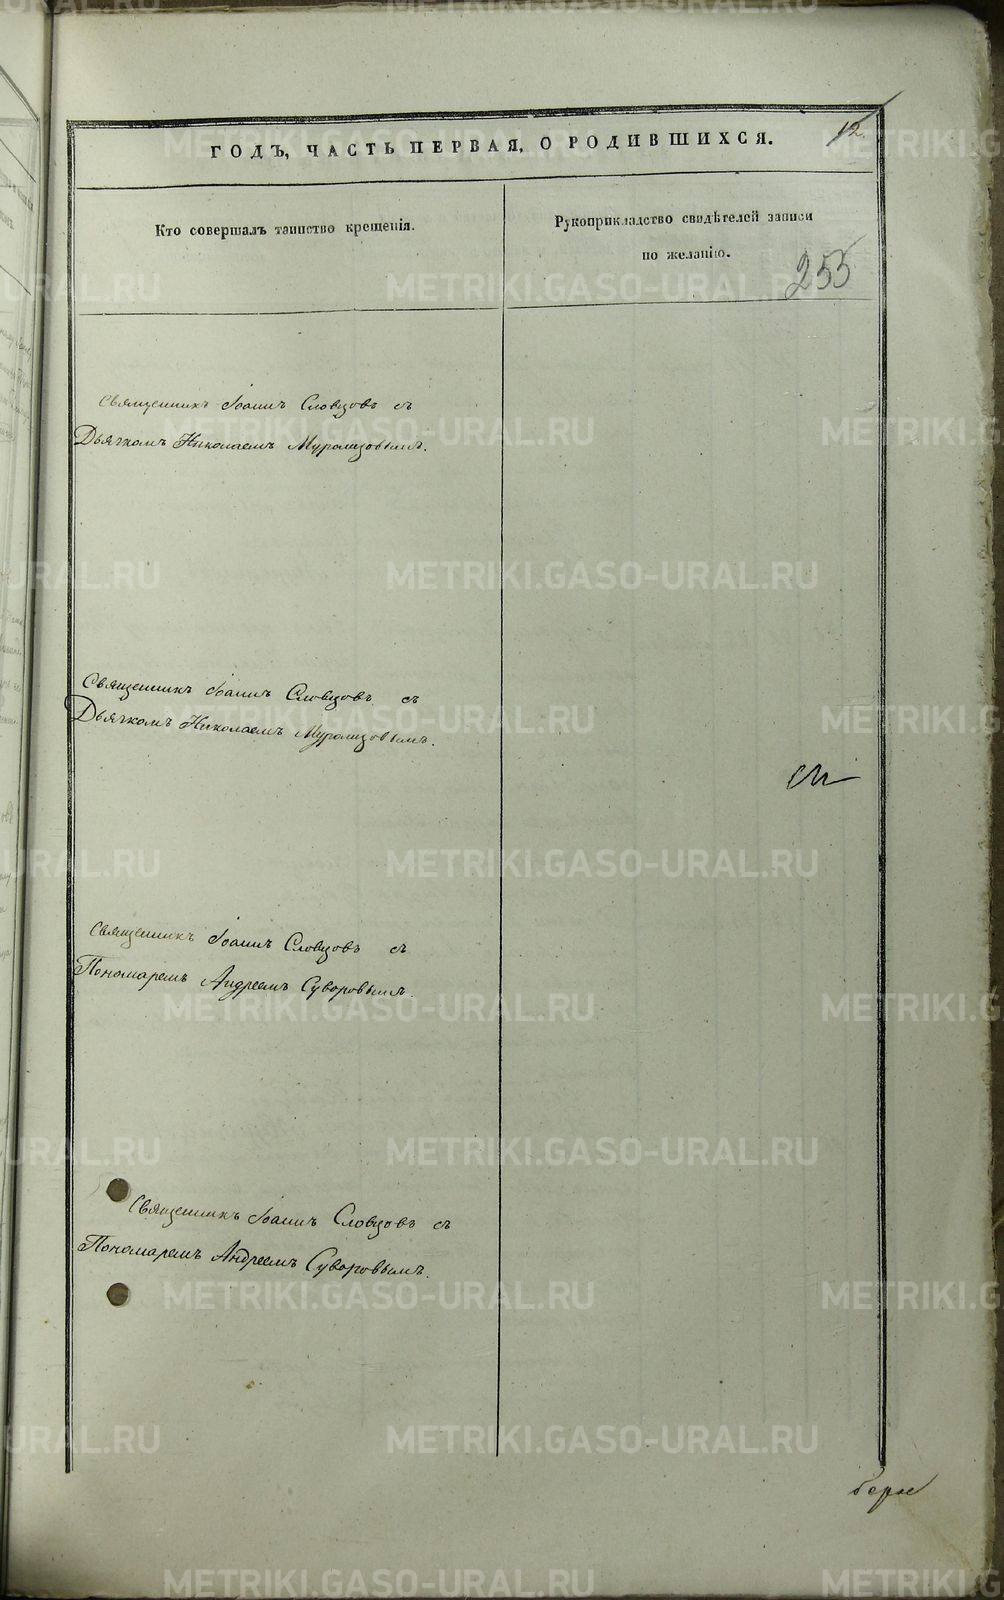 12
ГОДЪ, ЧАСТЬ ПЕРВАЯ, О РОДИВШИХСЯ.
Кто совершалъ таинство крещенія.
Рукоприкладство свидѣтелей записи
по желанію.
253
Священникъ Іоаннъ Словцовъ съ
Дьячкомъ Николаемъ Муромзовымъ.
Священникъ Іоаннъ Словцовъ съ
Дьячкомъ Николаемъ Муромзовымъ.
Священникъ Іоаннъ Словцовъ съ
Пономаремъ Андреемъ Суворовымъ.
Священникъ Іоаннъ Словцовъ съ
Пономаремъ Андреемъ Суворовымъ.
METRIKI.GASO-URAL.RU